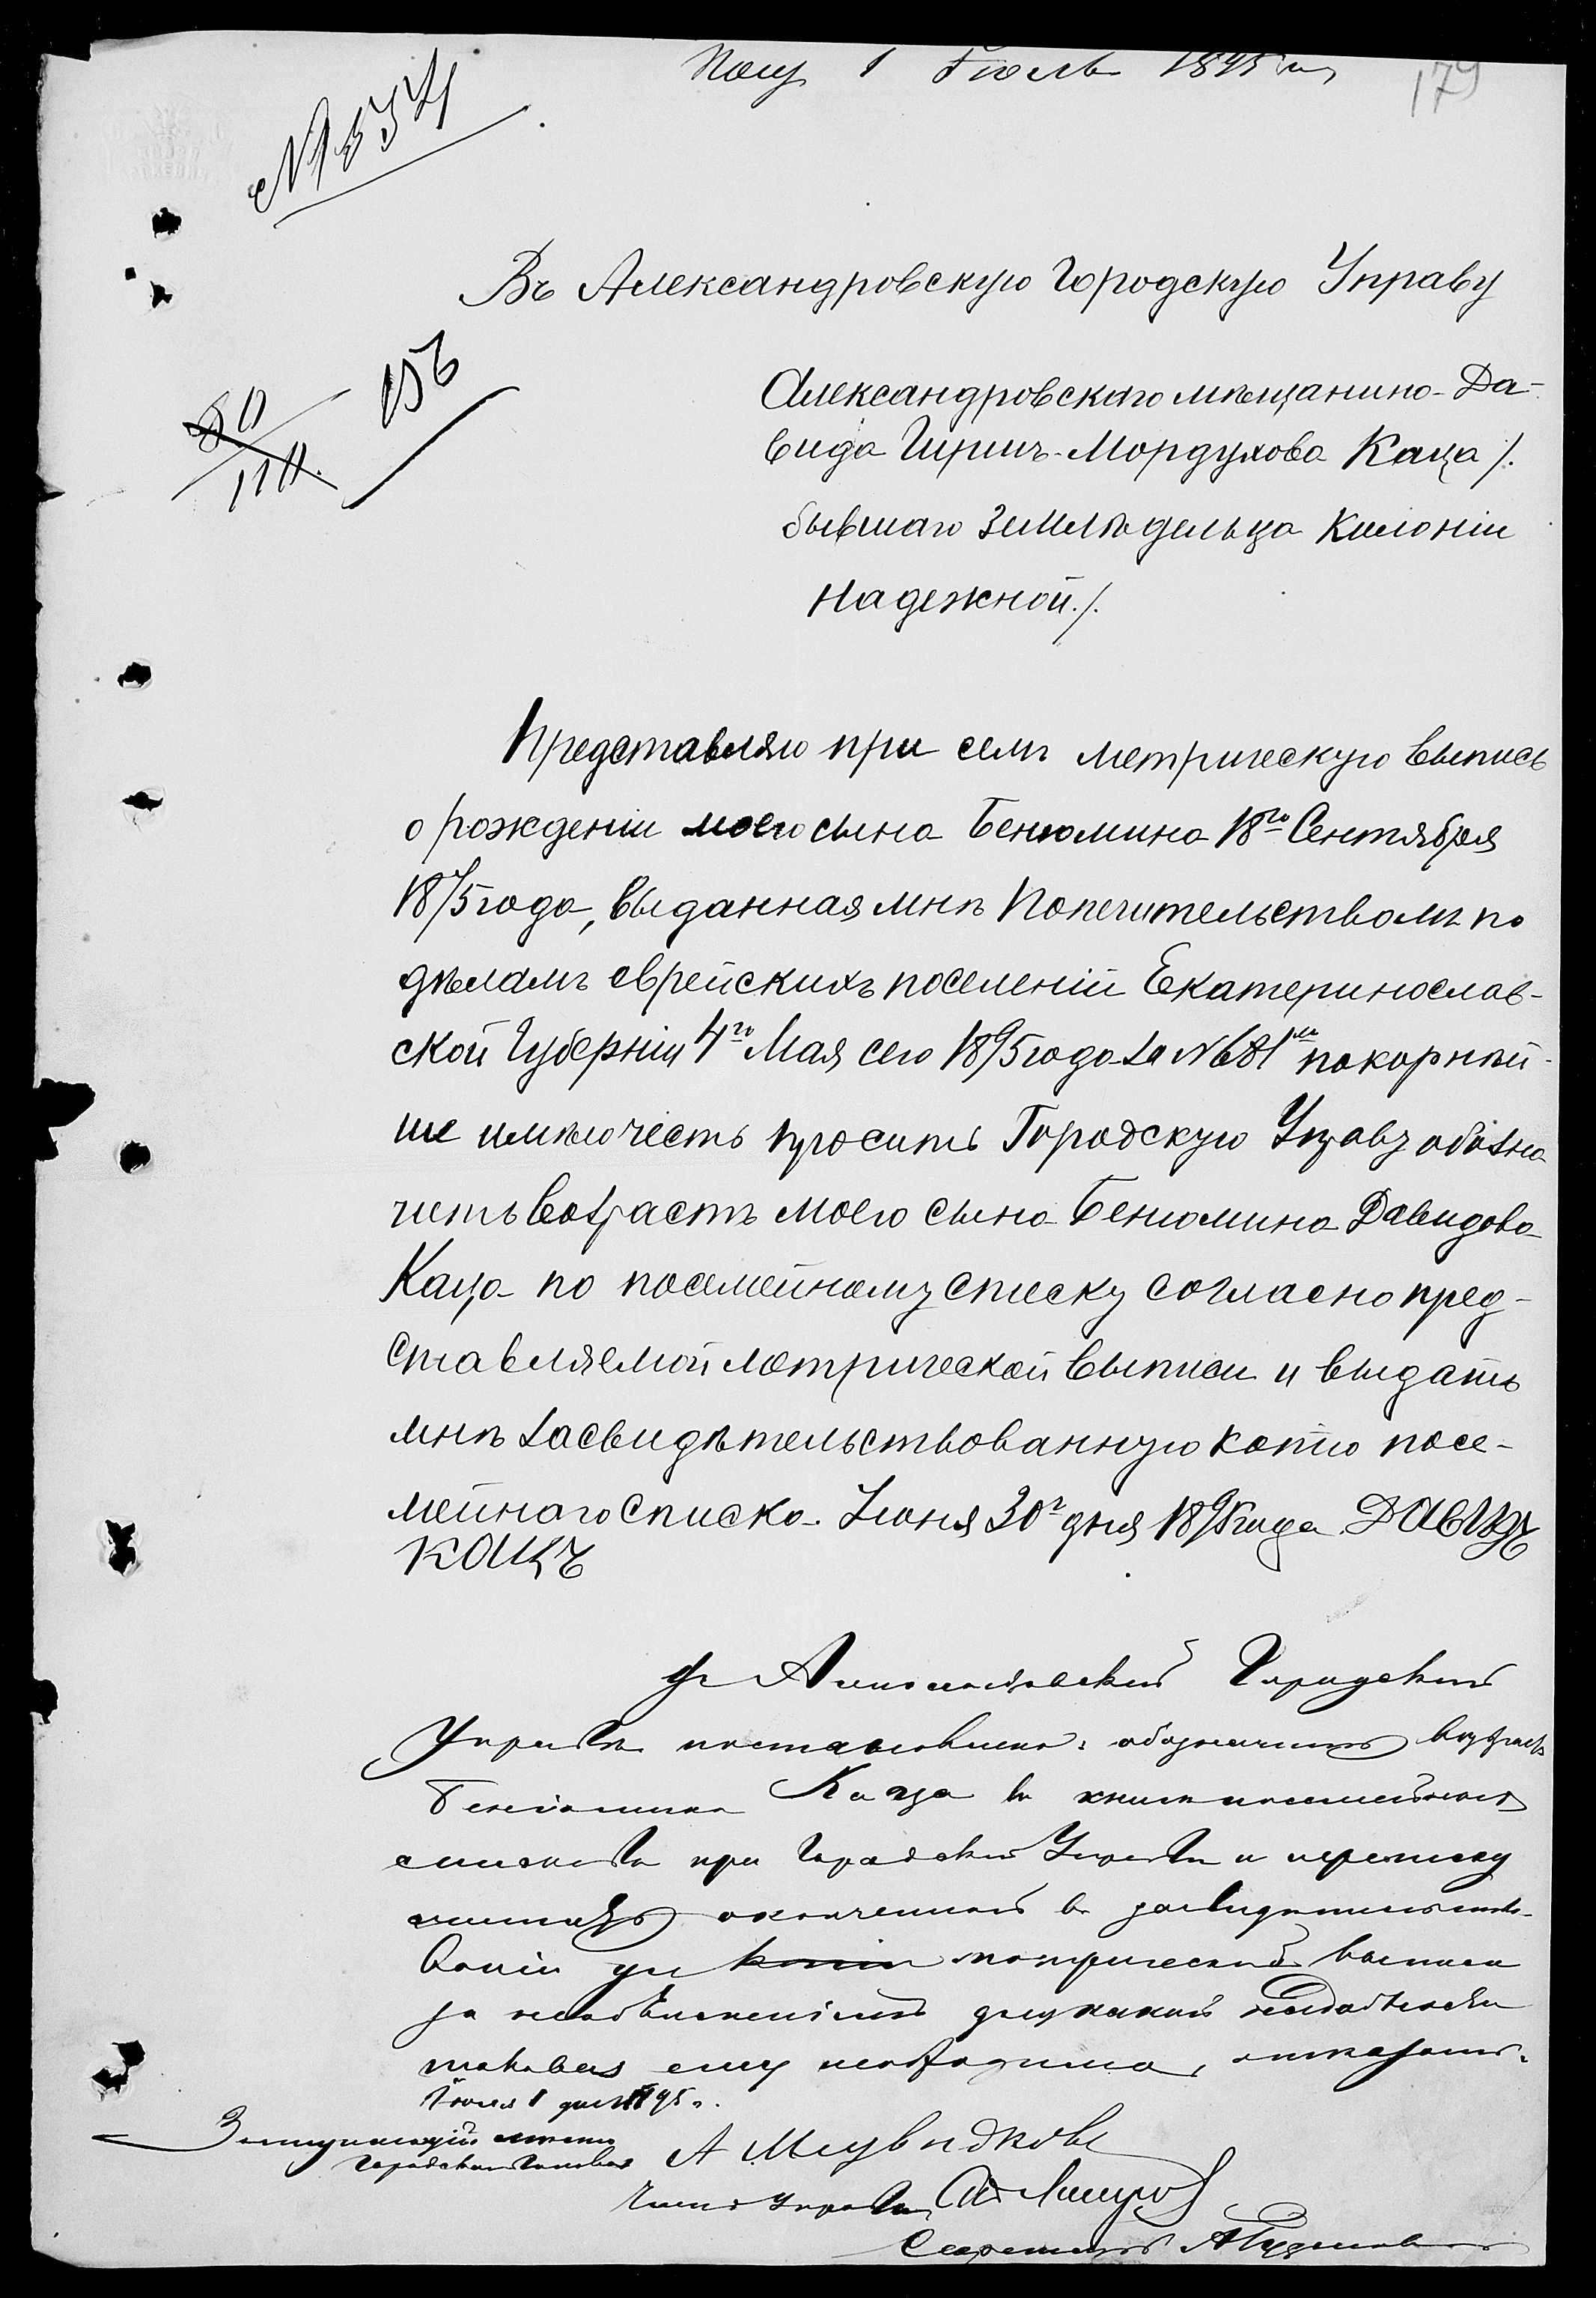 Полу. 1 Іюль 1895 г.
179
№ 1554
Въ Александровскую Городскую Управу
156
30
111
Александровскаго мѣщанина Да-
вида Гирша-Мордухова Каца /.
бывшаго Земледѣльца Колоніи
Надежной./.
Представляю при семъ метрическую выпись
о рожденіи моего сына Бенюмина 18го Сентября
1875 года, выданная мнѣ Попечительствомъ по
дѣламъ еврейскихъ поселеній Екатеринослав-
ской Губерніи 4го Мая сего 1895 года за № 681м покорнѣй-
ше имѣю честь просить Городскую Управу обозна
чить возрастъ моего сына Бенюмина Давидова
Каца по посемейному списку согласно пред-
ставляемой метрической выписи и выдать
мнѣ засвидѣтельствованную копію посе-
мейнаго списка. Іюня 30г дня 1895 года Давидъ
Кацъ
Городской
Управѣ постановлено: обозначить возрастъ
Бенюмина Каца въ книгѣ посемейныхъ
списковъ при Городской Управѣ и переписку
считать оконченной въ засвидѣтельство-
ваніи же копіи метрической выписи
за необъясненіемъ для какой надобности
таковая ему необходима, отказать.
Іюля 1 дня 1895 г.
Заступающій мѣсто
Городскаго Головы А Медвѣдковъ
Членъ Управы
Секретарь